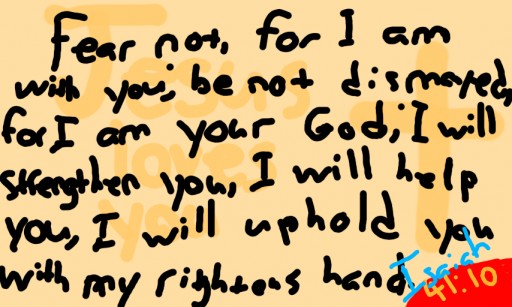 Fear not, for I am
with you; be not dismayed,
for I am your God; I will
strengthen you, I will help
you, I will uphold you
with my righteous hand
Isaiah
41:10
Jesus
loves
you